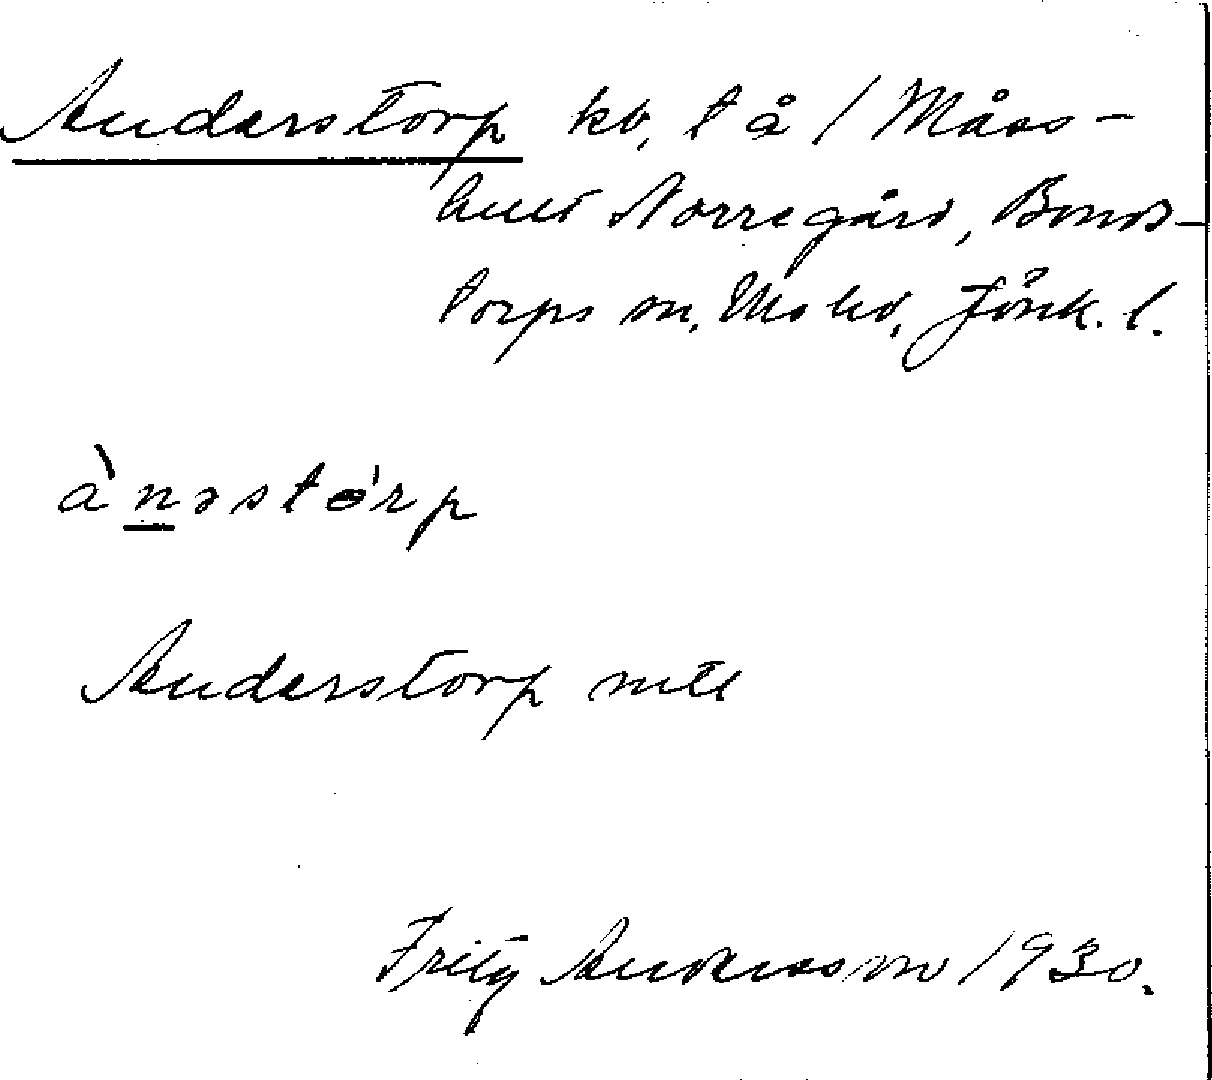 Anderstorp kb, t å / Måss-
hult Norregård, Bonds-
torps sn, Mo hd, Jönk. l.
ànəstórp
Anderstorp mtl
Fritz Andersson 1930.